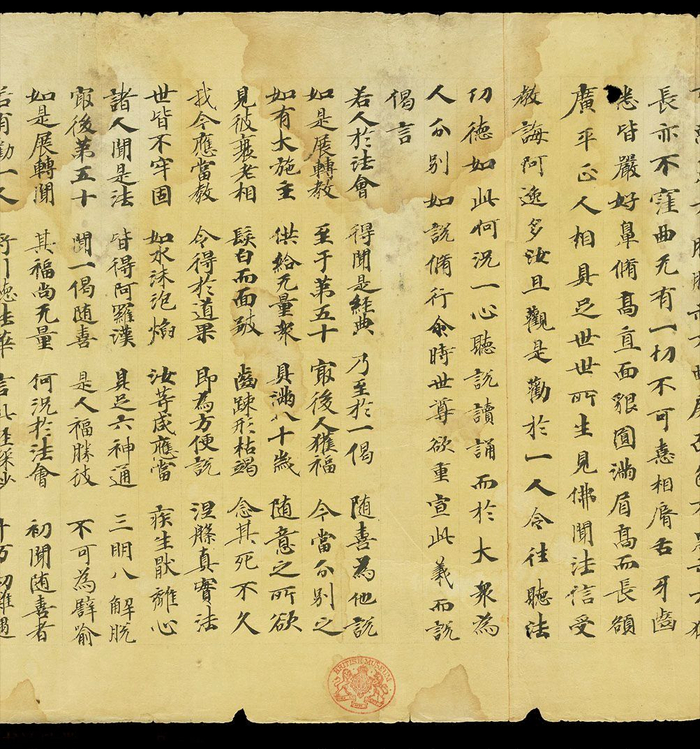 長亦不窪曲无有一切不可憙相脣舌牙齒
悉皆嚴好鼻脩高直面貌圓滿眉高而長額
廣平正人相具足世世所生見佛聞法信受
教誨阿逸多汝且觀是勸於一人令往聽法
功德如此何況一心聽說讀誦而於大衆為
人分別如說脩行尒時世尊欲重宣此義而說
偈言
若人於法會 得聞是經典 乃至於一偈 随喜為他說
如是展轉教 至于第五十 㝡後人獲福 今當分別之
如有大施主 供給无量衆 具滿八十歲 随意之所欲
見彼衰老相 髮白而面皺 齒踈形枯竭 念其死不久
我今應當教 令得於道果 即為方便說 涅槃真實法
世皆不牢固 如水沫泡焰 汝等咸應當 疾生猒離心
諸人聞是法 皆得阿羅漢 具足六神通 三明八解脫
㝡後第五十 聞一偈随喜 是人福勝彼 不可為譬喻
如是展轉聞 其福尚无量 何況於法會 初聞随喜者
BRITISH MUSEUM